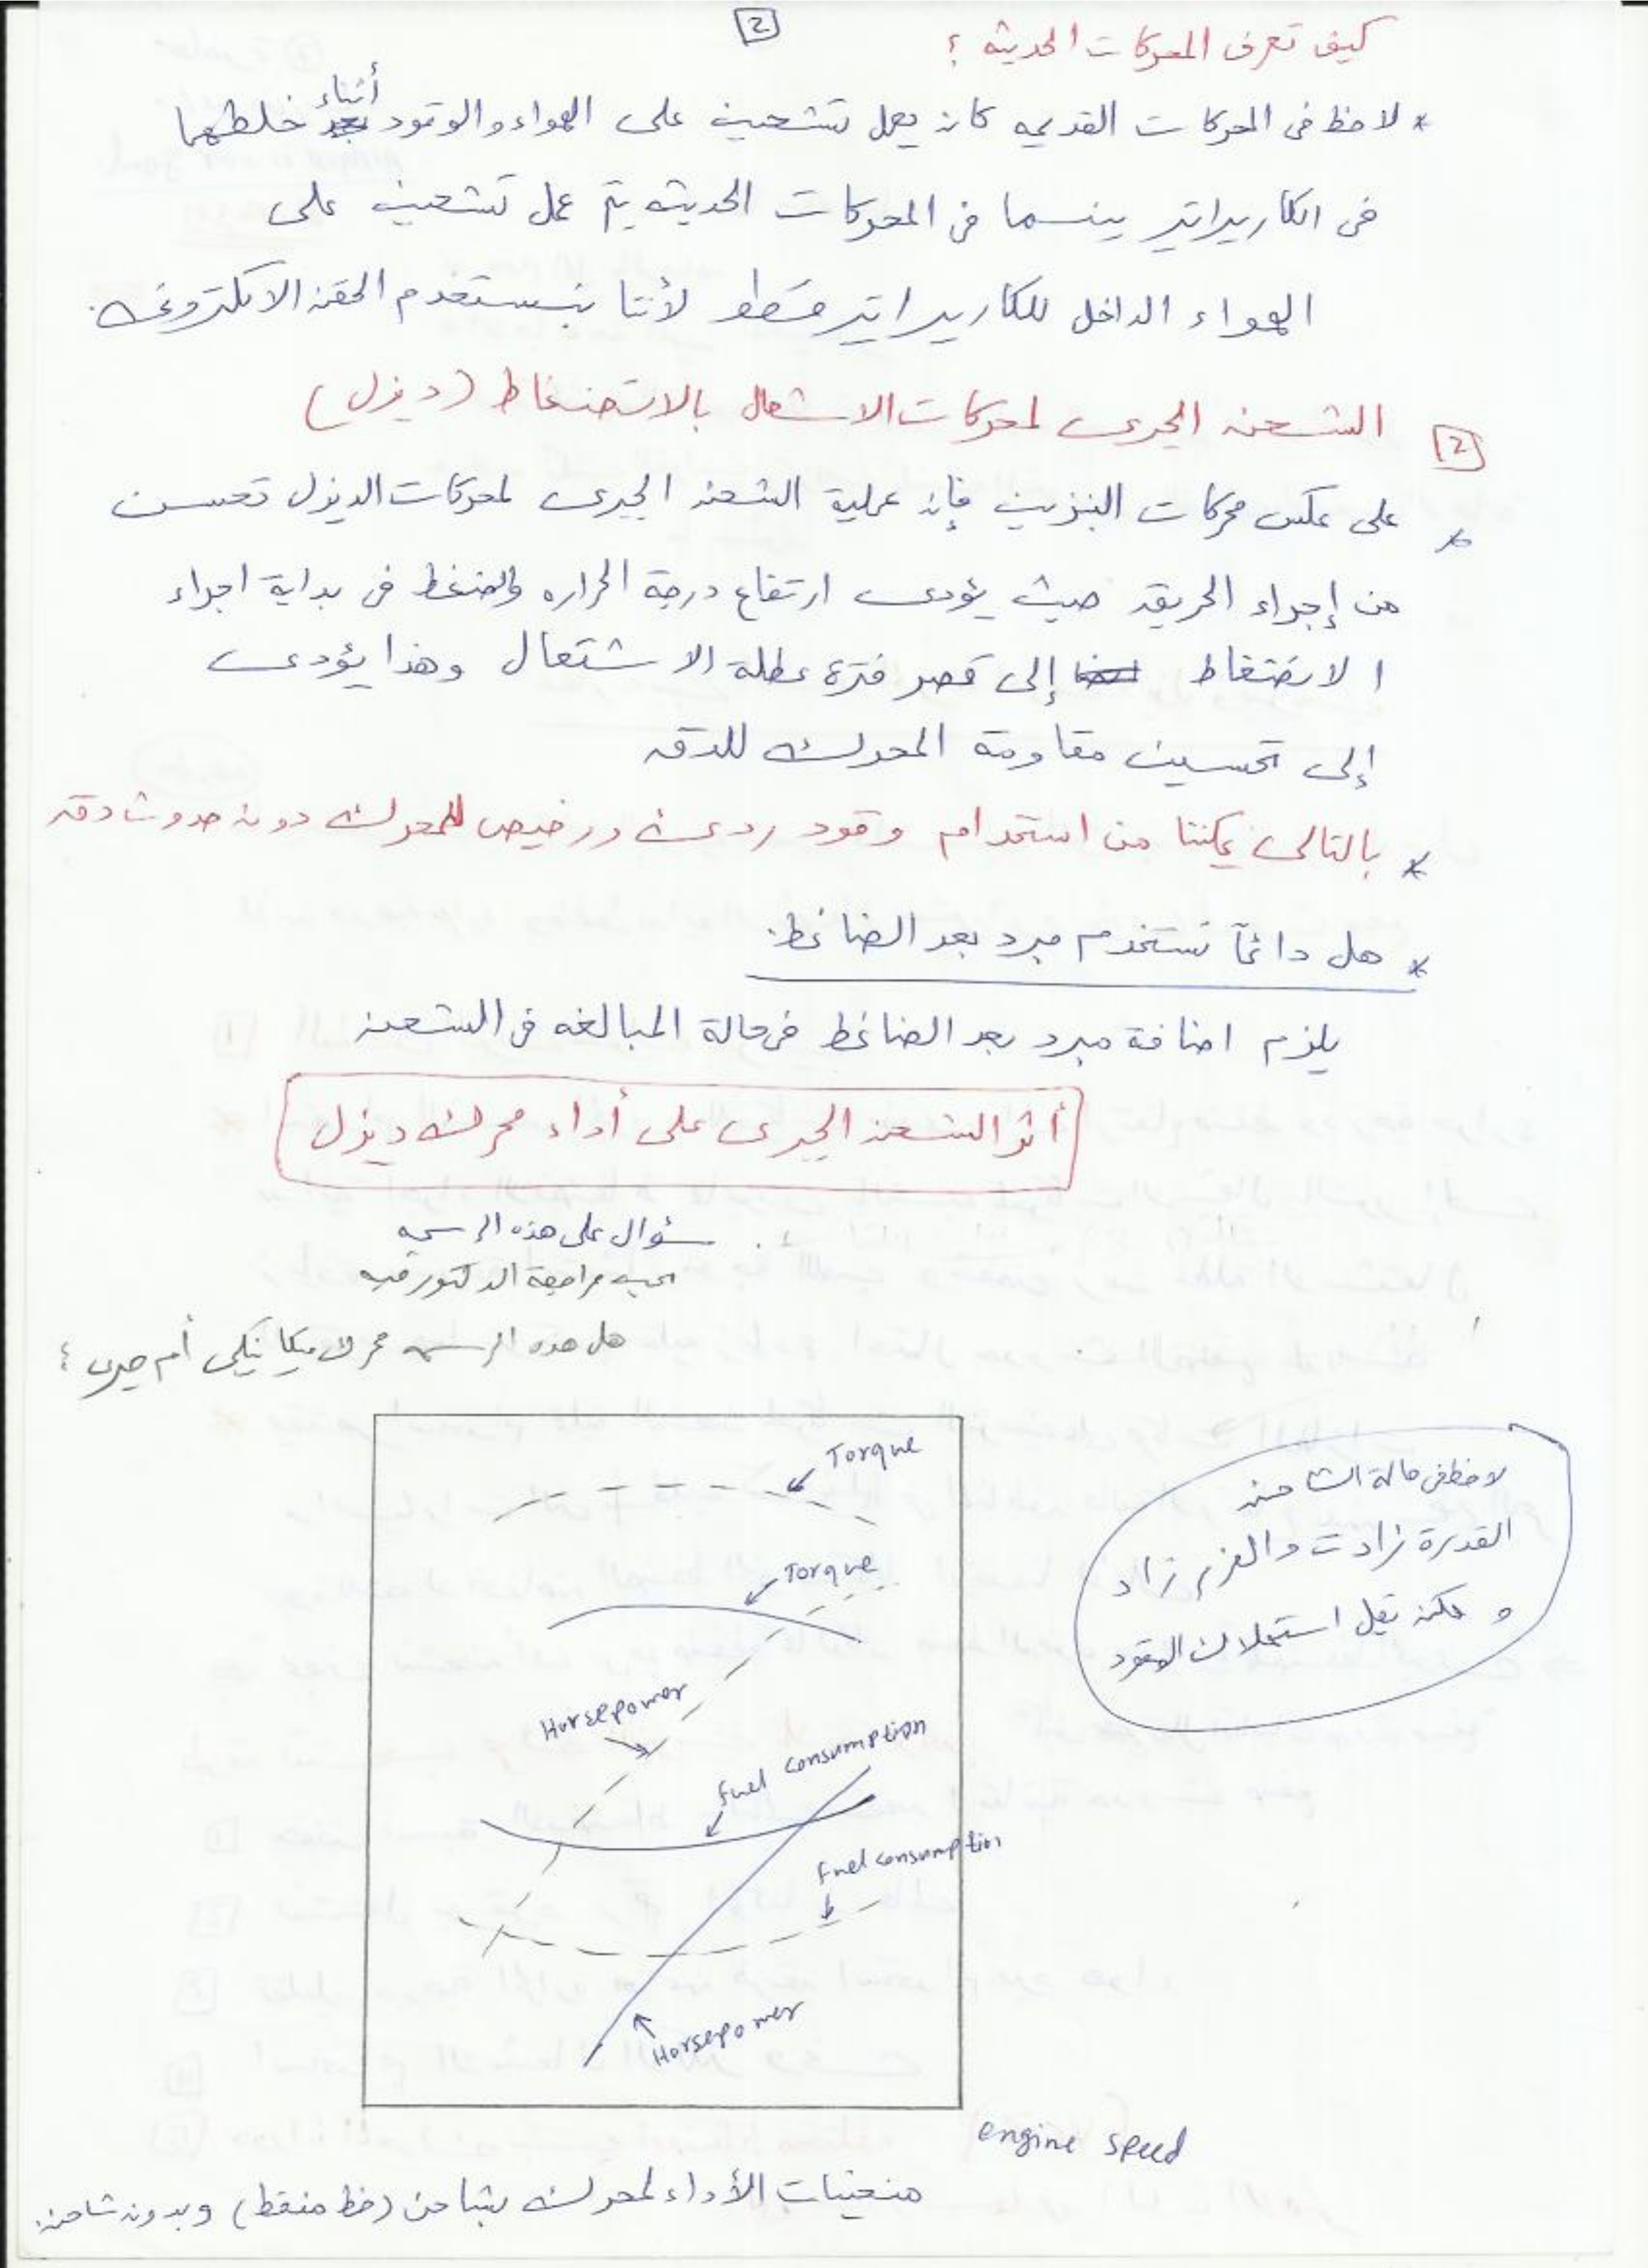 2
كيف تعرف المحركات الحديثه ؟
* لاحظ فى المحركات القديمه كان يعمل تشحين على الهواء والوقود أثناء خلطهما
فى الكاربيراتير بينما فى المحركات الحديثه يتم عمل تشحين على
الهواء الداخل للكاربيراتير فقط لأننا بنستخدم الحقن الالكترونى.
2 الشحن الجبرى لمحركات الاشعال بالانضغاط (ديزل)
* على عكس محركات البنزين فإن عملية الشحن الجبرى لمحركات الديزل تحسن
من إجراء الحريق حيث يؤدى ارتفاع درجة الحراره والضغط فى بداية اجراء
الانضغاط إلى قصر فترة عطلة الاشتعال وهذا يؤدى
إلى تحسين مقاومة المحرك للدق
* بالتالى يمكننا من استخدام وقود ردئ ورخيص للمحرك دون حدوث دق
* هل دائماً نستخدم مبرد بعد الضاغط.
يلزم اضافة مبرد بعد الضاغط فى حالة المبالغه فى الشحن
أثر الشحن الجبرى على أداء محرك ديزل
سؤال على هذه الرسمه
يجب مراجعة الدكتور فيه
هل هذه الرسمه محرك ميكانيكى أم جبرى ؟
Torque
لاحظ فى حالة الشاحن
القدرة زادت والعزم زاد
ولكن يقل استهلاك الوقود
Torque
Horsepower
fuel consumption
Fuel consumption
Horsepower
engine speed
منحنيات الأداء لمحرك بشاحن (خط منقط) وبدون شاحن.